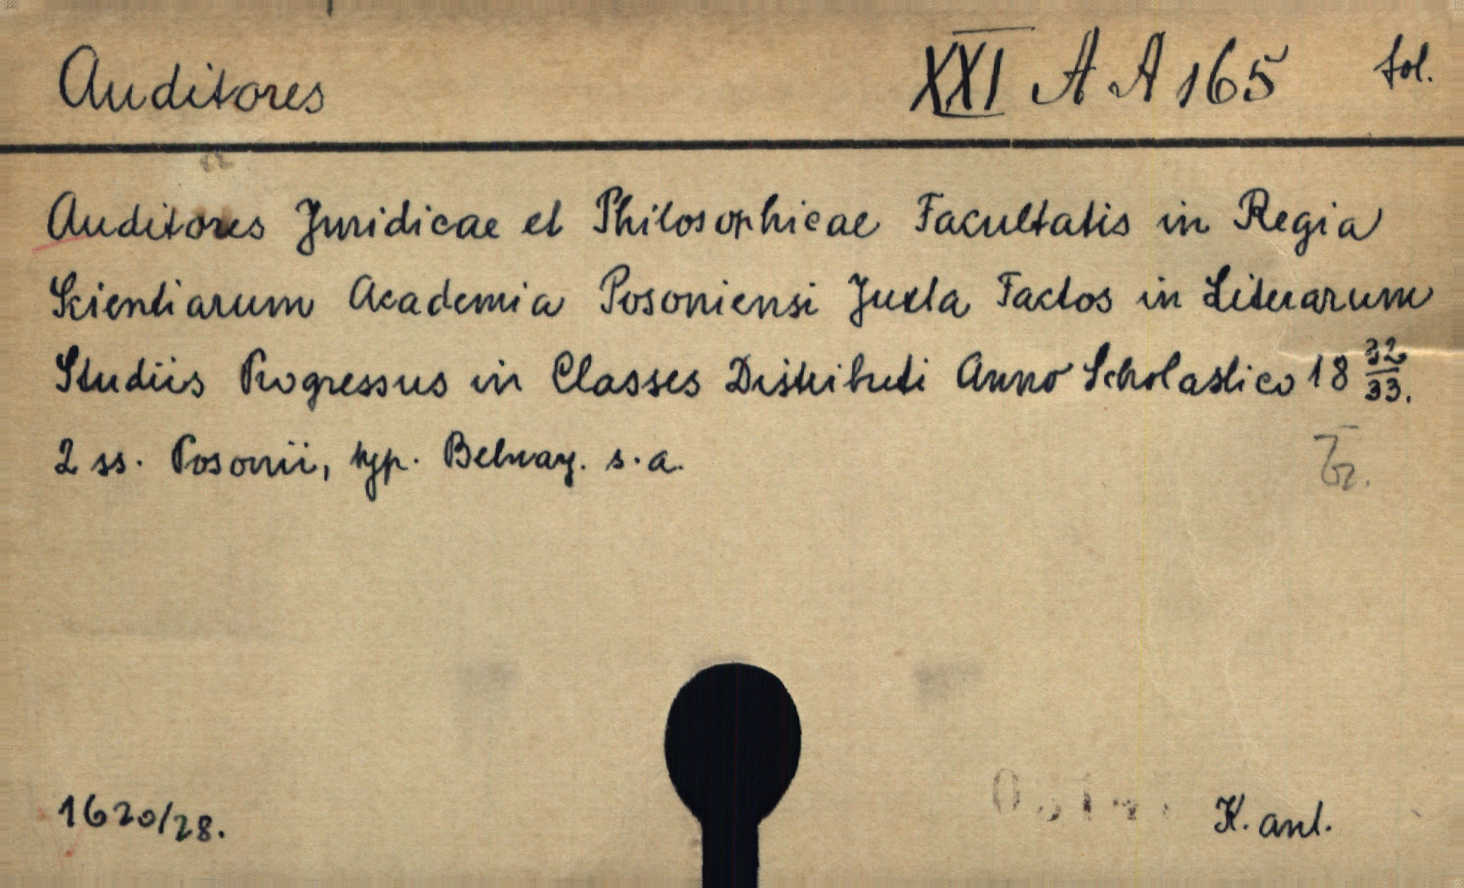 Auditores XXI A A 165 fol.
Auditores Juridicae et Philosophicae Facultatis in Regia
Scientiarum Academia Posoniensi Juxta Factos in Literarum
Studiis Progressus in Classes Distributi Anno Scholastico 18 32/33.
2 ss. Posonii, typ. Belnay. s. a.
1620/28. K. ant.